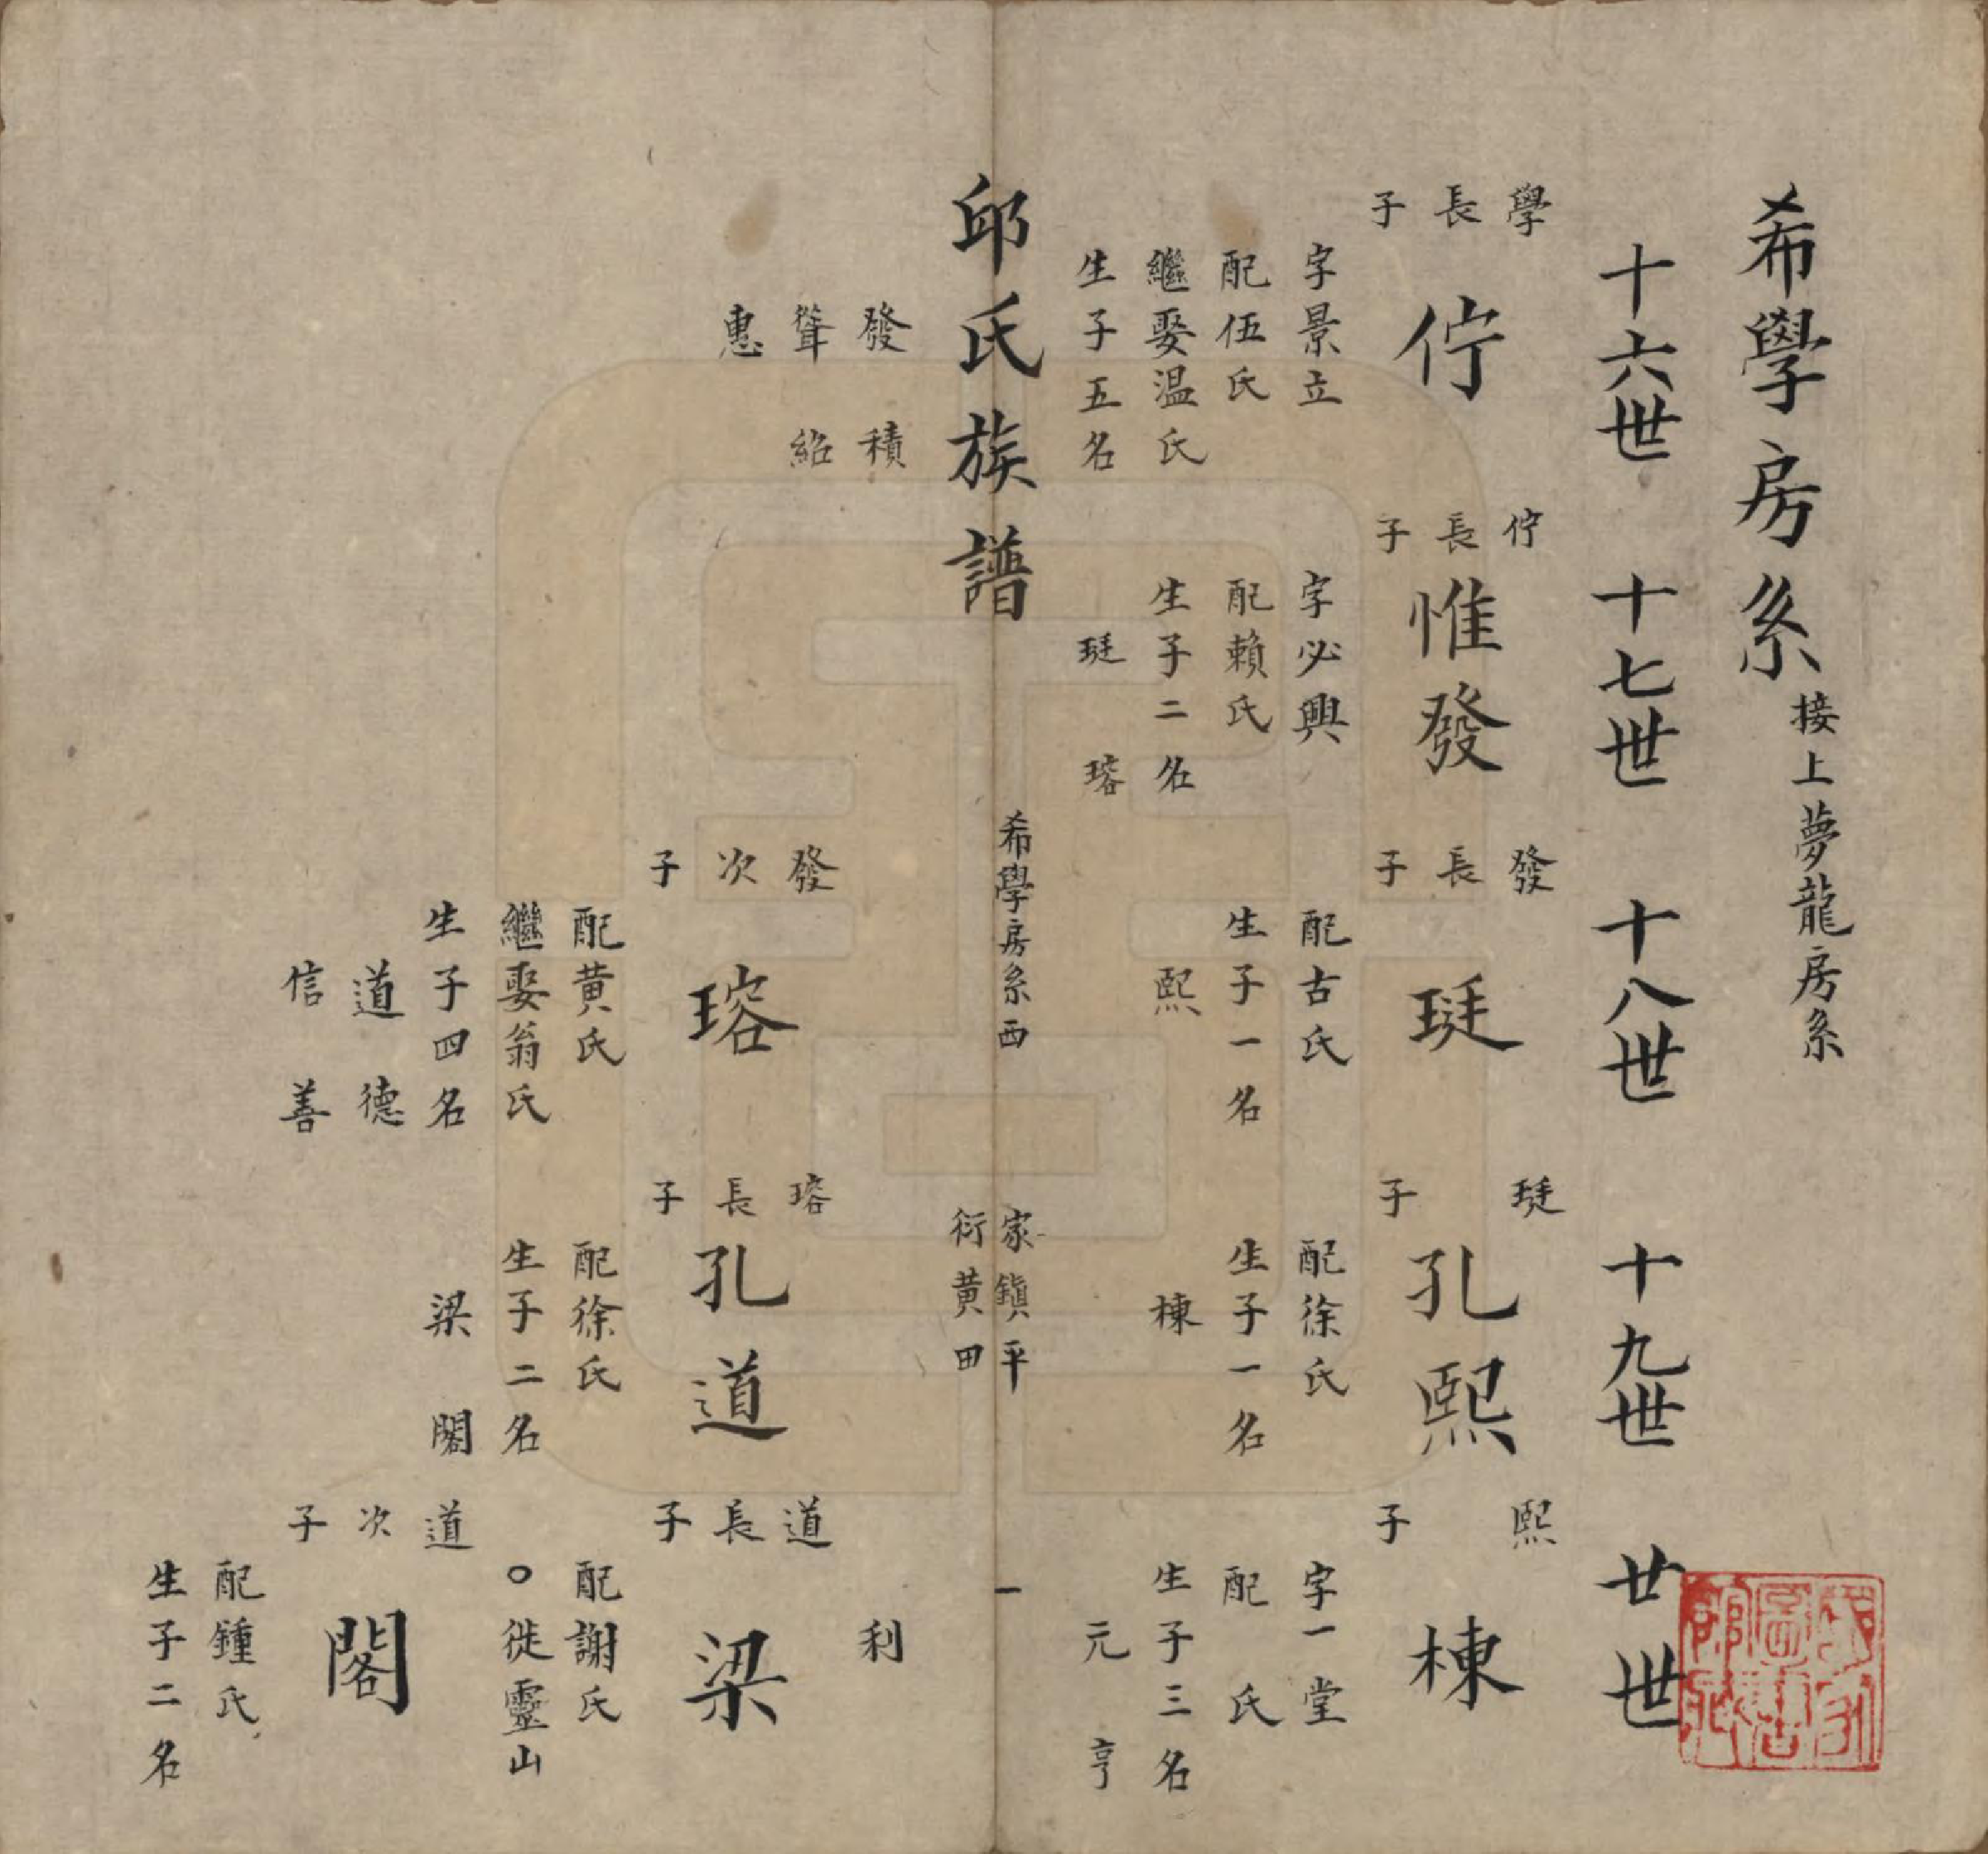 希學房系 接上夢龍房系
十六世 十七世 十八世 十九世 廿世
學長子
佇
字景立
配伍氏
繼娶温氏
生子五名
發 積
聳 紹
惠
佇長子
惟發
字必興
配賴氏
生子二名
珽 瑢
發長子
珽
配古氏
生子一名
熙
珽子
孔熙
配徐氏
生子一名
棟
熙子
棟
字一堂
配 氏
生子三名
元 亨
利
邱氏族譜
希學房系西
家鎮平
衍黄田
一
發次子
瑢
配黄氏
繼娶翁氏
生子四名
道 德
信 善
瑢長子
孔道
配徐氏
生子二名
梁 閣
道長子
梁
配謝氏
○徙靈山
道次子
閣
配鍾氏
生子二名